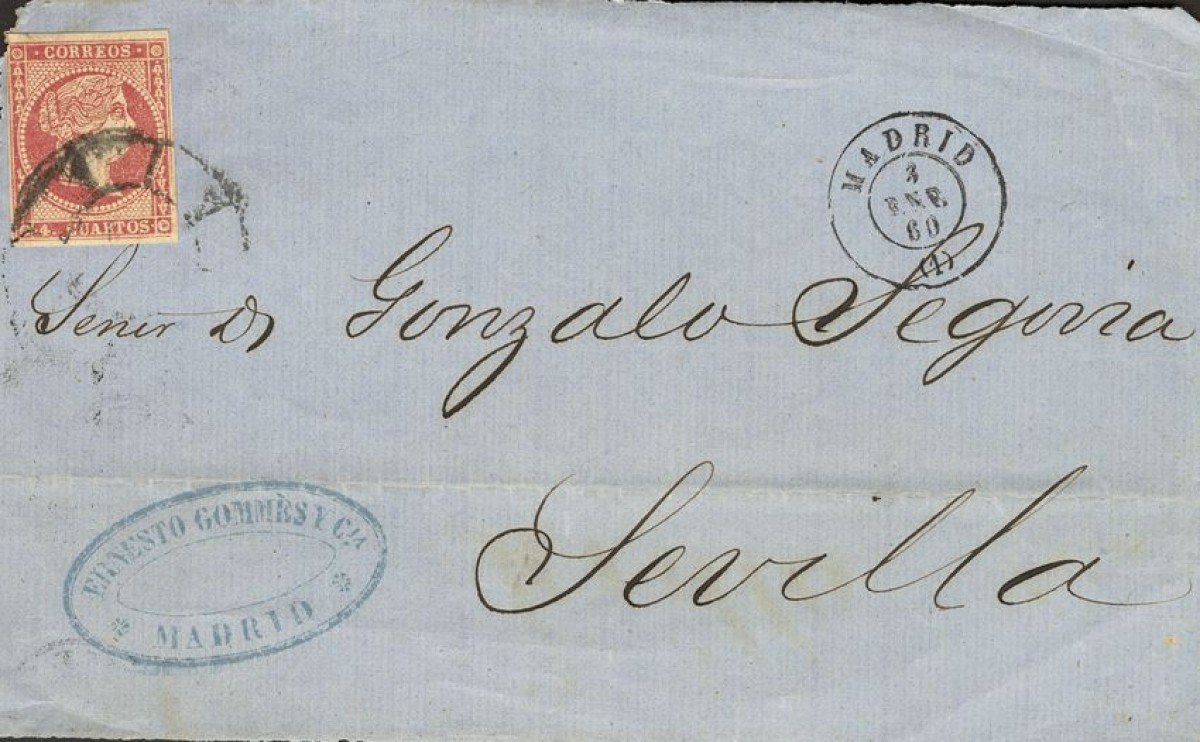 · CORREOS ·
4. CUARTOS
MADRID
3
ENE
60
(1)
Senor Dn Gonzalo Segovia
Sevilla
ERNESTO GOMMÈS Y Cía
MADRID